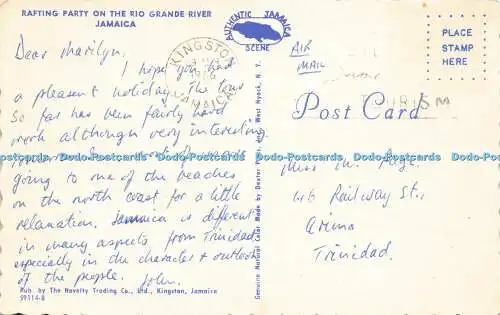 RAFTING PARTY ON THE RIO GRANDE RIVER
JAMAICA
AUTHENTIC JAMAICA
SCENE
PLACE
STAMP
HERE
KINGSTON
JAMAICA
AIR
MAIL
Post Card
Dear Marilyn,
I hope you had
a pleasant holiday. The tour
so far has been fairly hard
work although very interesting.
going to one of the beaches
on the north coast for a little
relaxation. Jamaica is different
in many aspects from Trinidad
especially in the character & outlook
of the people. John.
Miss M.
46 Railway St.,
Arima
Trinidad.
Pub. by The Novelty Trading Co., Ltd., Kingston, Jamaica
59114-B
Genuine Natural Color Made by Dexter West Nyack, N. Y.
Dodo-Postcards.com Dodo-Postcards.com Dodo-Postcards.com